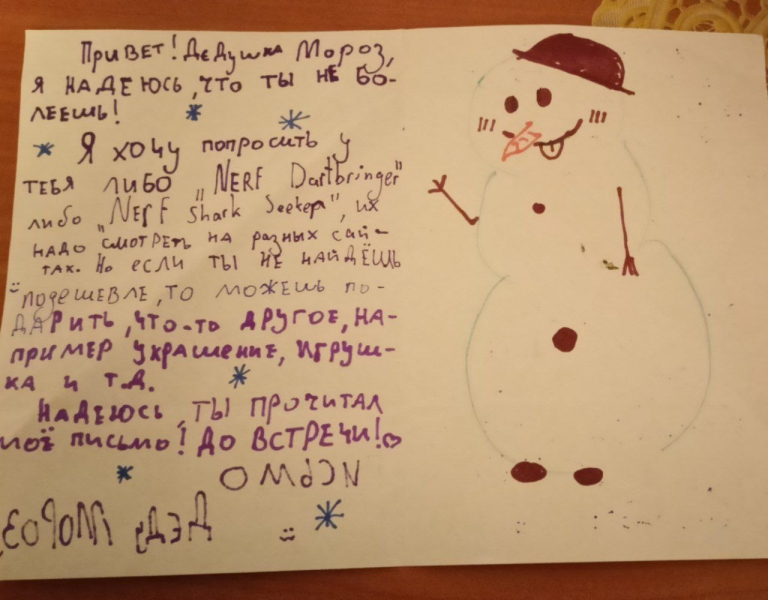 Привет! Дедушка Мороз,
я надеюсь, что ты не бо-
леешь!
Я хочу попросить у
тебя либо "NERF Dartbringer"
либо "NERF Shark Seeker", их
надо смотреть на разных сай-
тах. Но если ты не найдёшь
подешевле, то можешь по-
дарить, что-то другое, на-
пример украшение, игруш-
ка и т.д.
Надеюсь, ты прочитал
моё письмо! До встречи!
Письмо
Деду Морозу